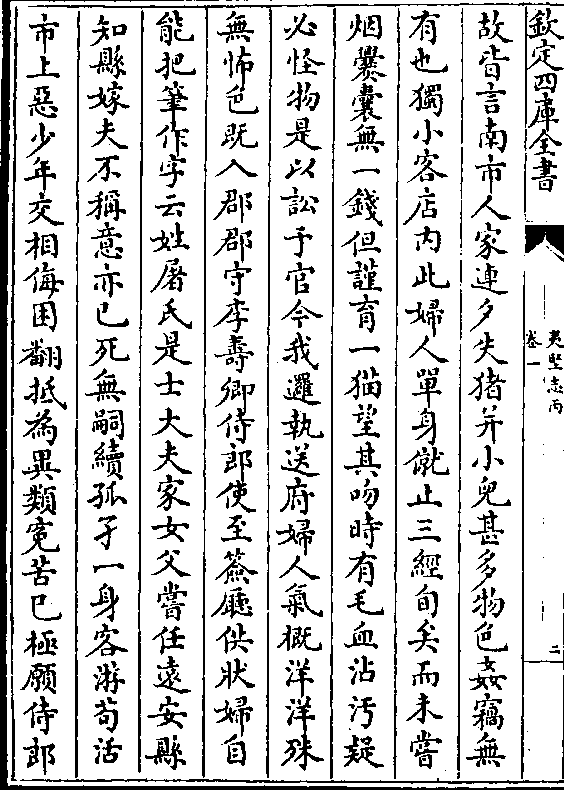 欽定四庫全書
夷堅志丙
卷一
二
故皆言南市人家連夕失猪并小兒甚多物色姦竊無
有也獨小客店內此婦人單身僦止三經旬矣而未嘗
烟爨囊無一錢但謹育一猫望其吻時有毛血沾汚疑
必怪物是以訟于官今我邏執送府婦人氣概洋洋殊
無怖色既入郡郡守李壽卿侍郎使至簽廳供狀婦自
能把筆作字云姓屠氏是士大夫家女父嘗任遠安縣
知縣嫁夫不稱意亦已死無嗣續孤孑一身客游苟活
市上惡少年交相侮困翻抵為異類寃苦已極願侍郎